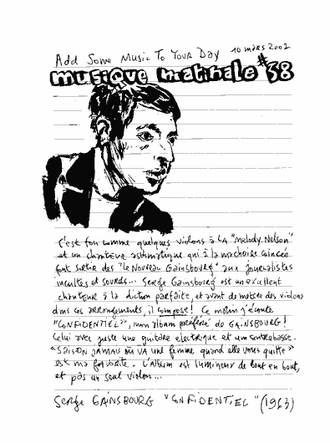 Add Some Music To Your Day 10 mars 2002
musique matinale #38
C'est fou comme quelques violons à la "Melody Nelson"
et un chanteur asthmatique qui à la machoire coincée
font sortir des "le nouveau Gainsbourg" aux journalistes
incultes et sourds... Serge Gainsbourg est un excellent
chanteur à la diction parfaite, et avant de mettre des violons
dans ses arrangements, il compose! Ce matin j'écoute
"CONFIDENTIEL", mon album préféré de GAINSBOURG!
Celui avec juste une guitare electrique et une contrebasse.
"SAISON jamais où va une femme quand elle vous quitte"
est ma favorite. L'album est lumineux de bout en bout,
et pas un seul violon...
SERGE GAINSBOURG "CONFIDENTIEL" (1963)